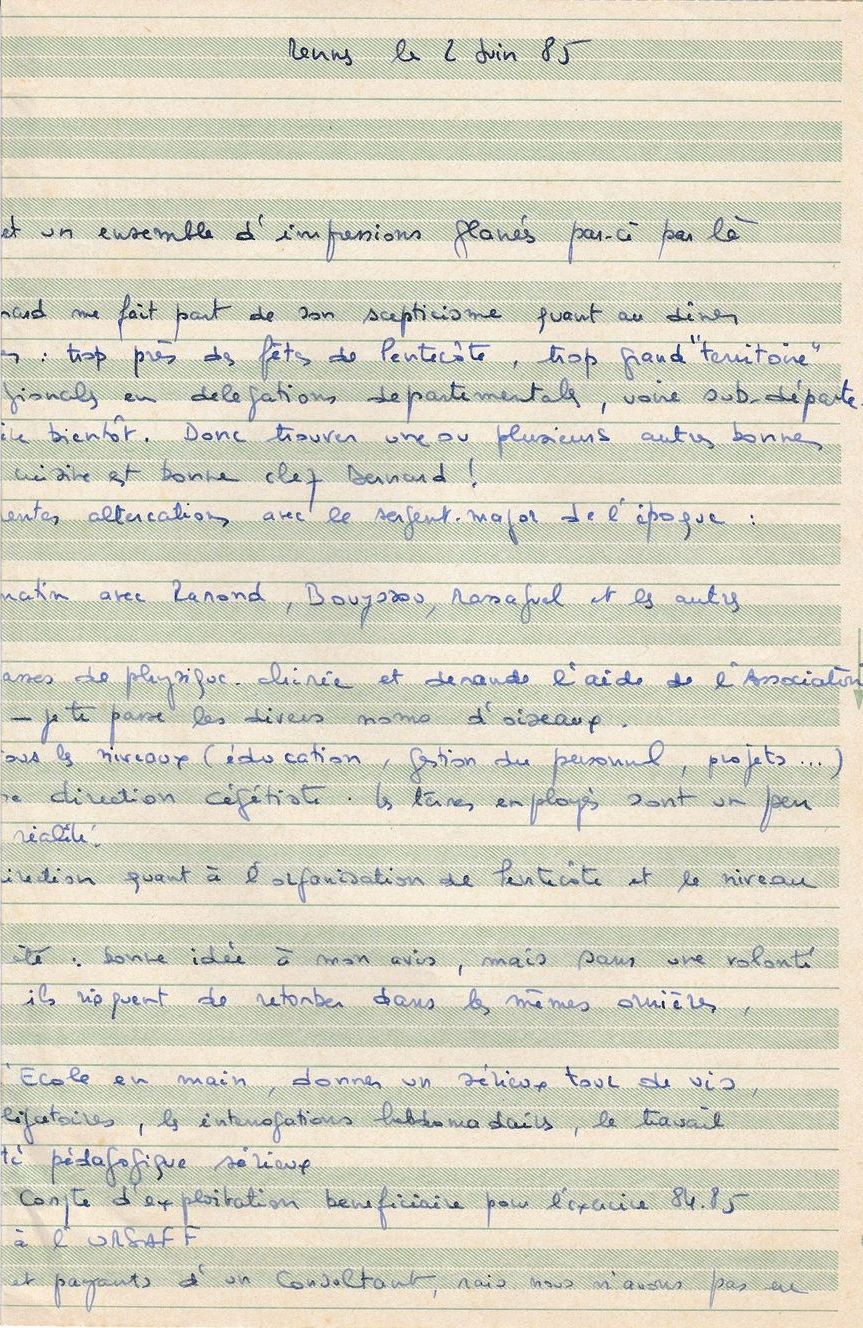 Rennes le 2 Juin 85
et un ensemble d'impressions glanés par-ci par là
nard me fait part de son scepticisme quant au dîner
: trop près des fêtes de Pentecôte, trop grand "territoire"
gionals en delegations departementales, voire sub-départe
bientôt. Donc trouver une ou plusieurs autres bonnes
cuisine est bonne chez Bernard !
entes altercations avec le sergent-major de l'époque :
matin avec Ramond, Bouyssou, Massaguel et les autres
asses de physique-chimie et demande l'aide de l'Association
– je te passe les divers noms d'oiseaux.
ous les niveaux (éducation, gestion du personnel, projets...)
direction cégétiste. les termes employés sont un peu
réalité.
irection quant à l'organisation de Pentecôte et le niveau
été : bonne idée à mon avis, mais sans une volonté
ils risquent de retomber dans les mêmes ornières,
'Ecole en main, donner un sérieux tour de vis,
ligatoires, les interrogations hebdomadaires, le travail
té pédagogique sérieux
Compte d'exploitation beneficiaire pour l'exercice 84.85
à l'URSAFF
et payants d'un Consultant, mais nous n'avons pas eu